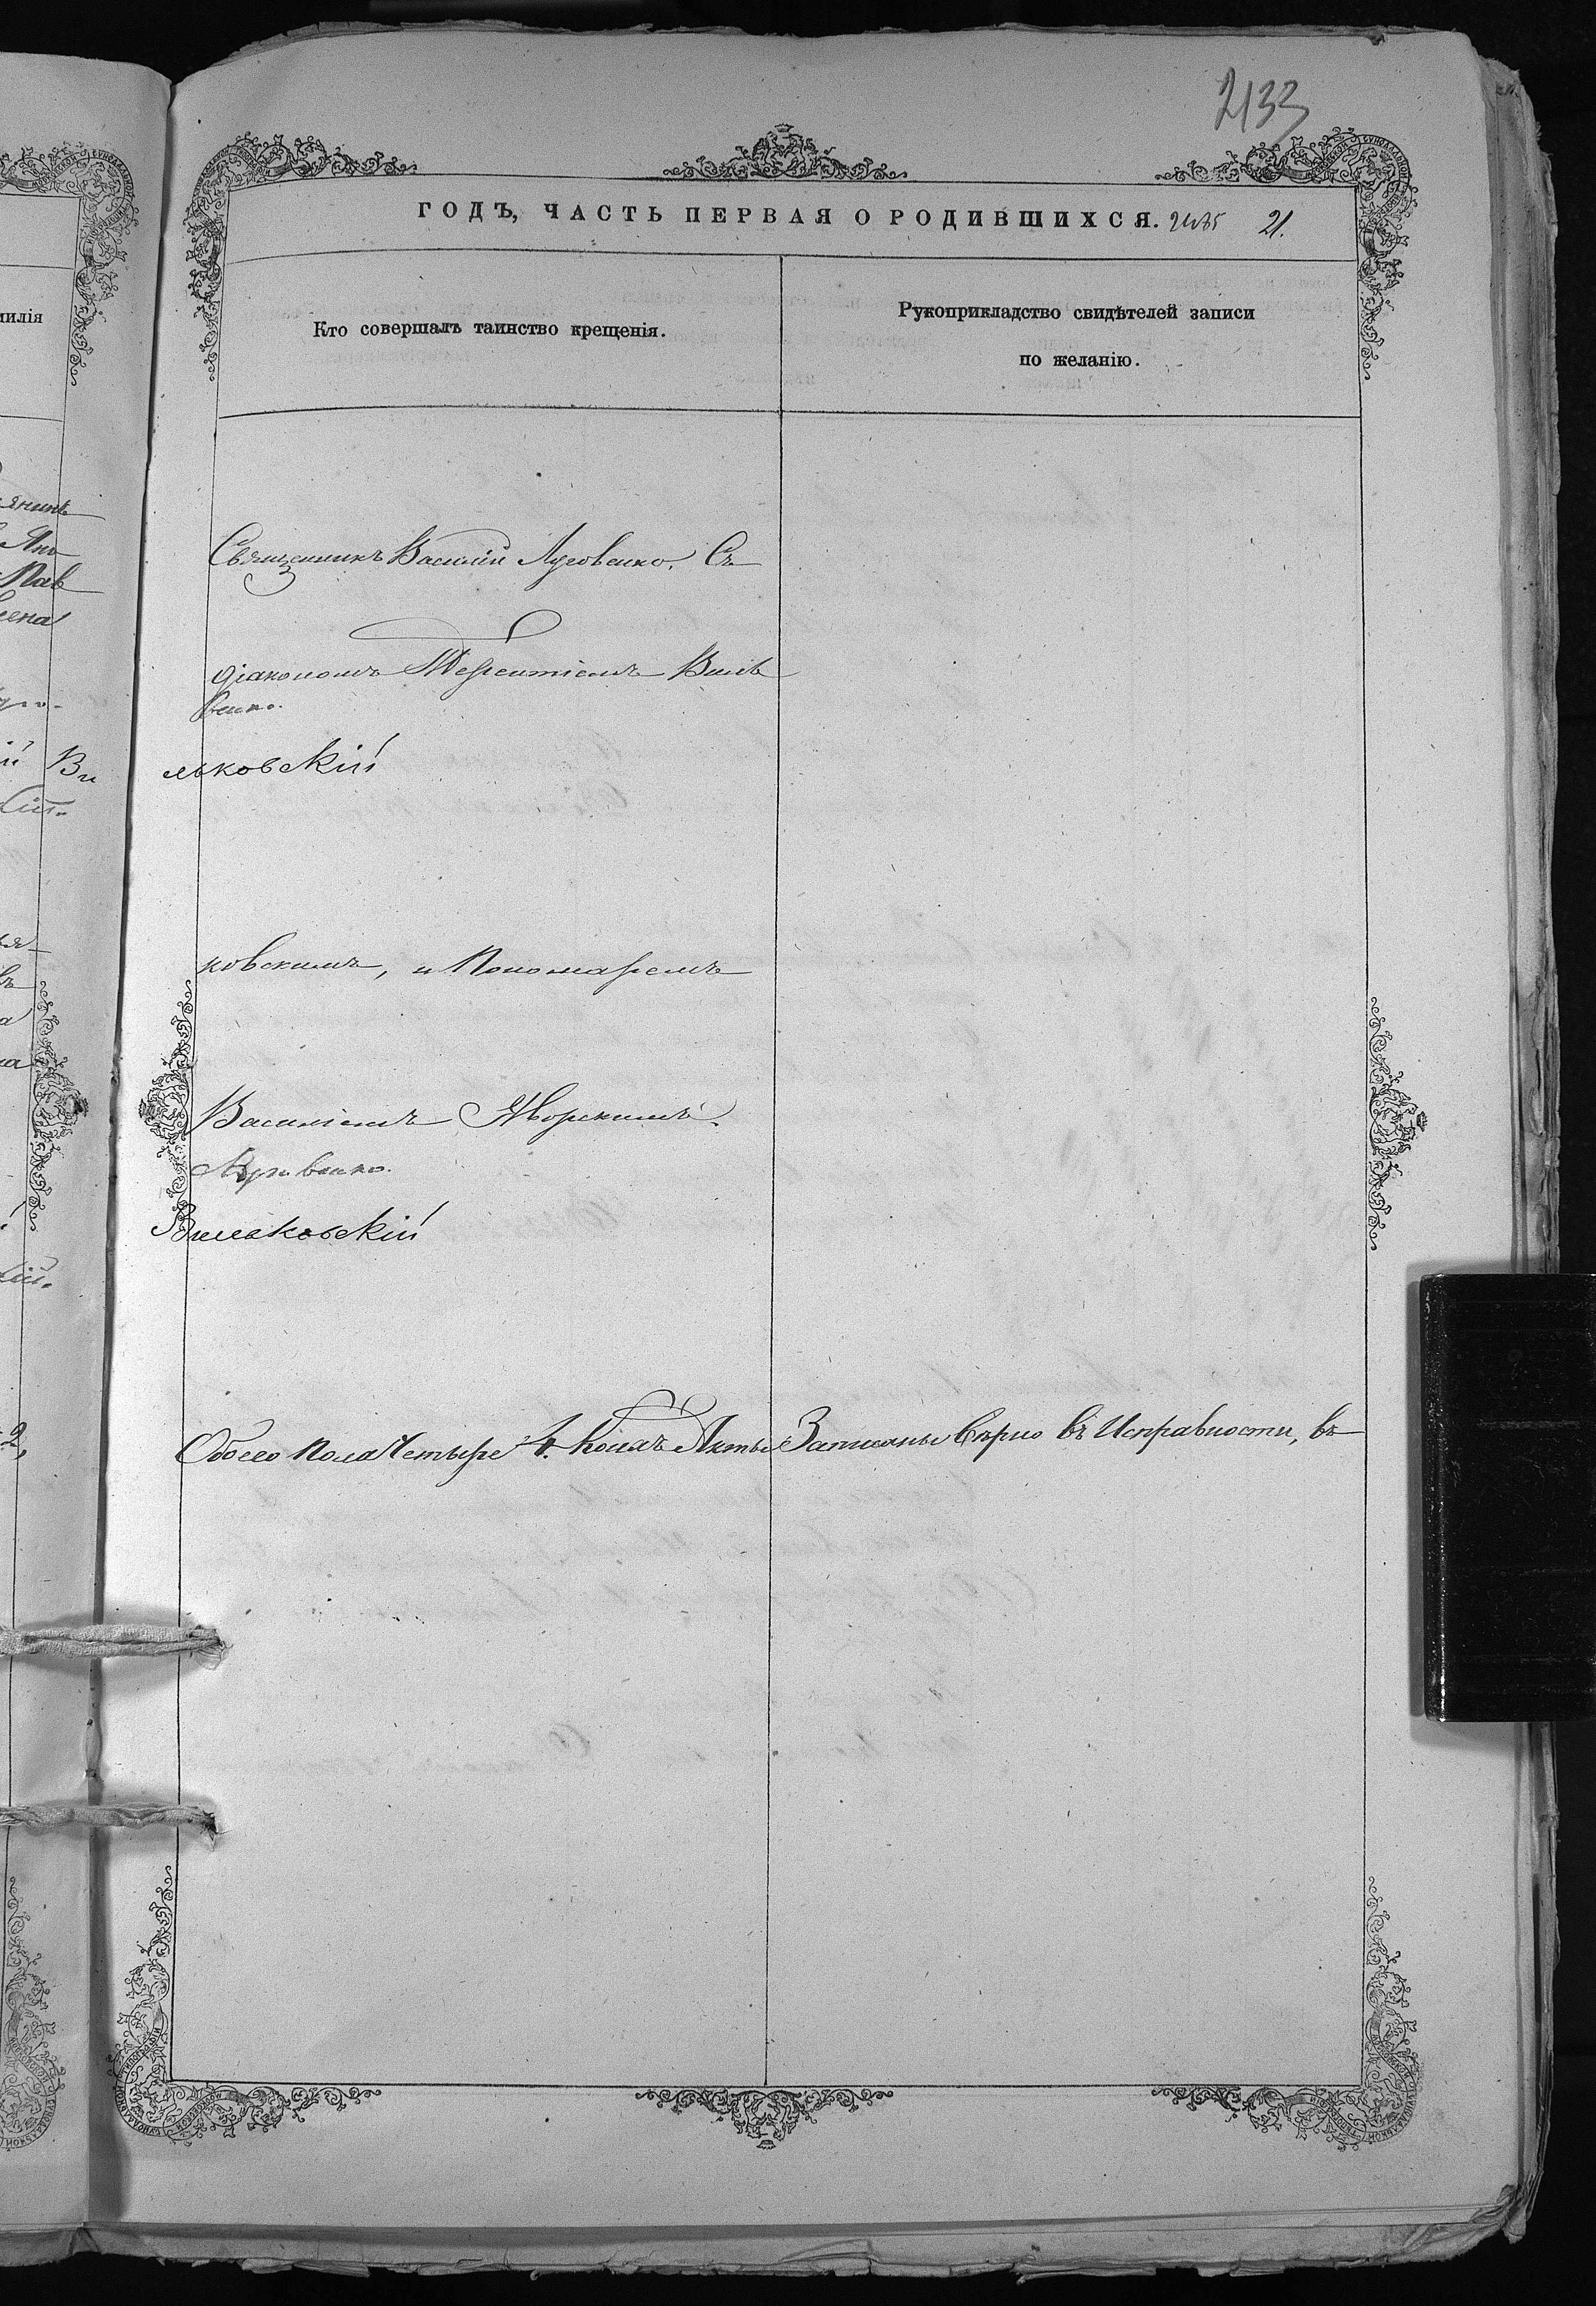 2133
ГОДЪ, ЧАСТЬ ПЕРВАЯ О РОДИВШИХСЯ. 21.
милія
Кто совершалъ таинство крещенія.
Рукоприкладство свидѣтелей записи
по желанію.
Священникъ Василій Луговенко, Съ
діакономъ Терентіемъ Виль
венко.
ьковскій
ковскимъ, и Пономаремъ
Василіемъ Яворскимъ.
Луговенко.
Вильковскій
Обоего пола Четыре 4. коихъ Акты Записаны вѣрно въ Исправности, въ